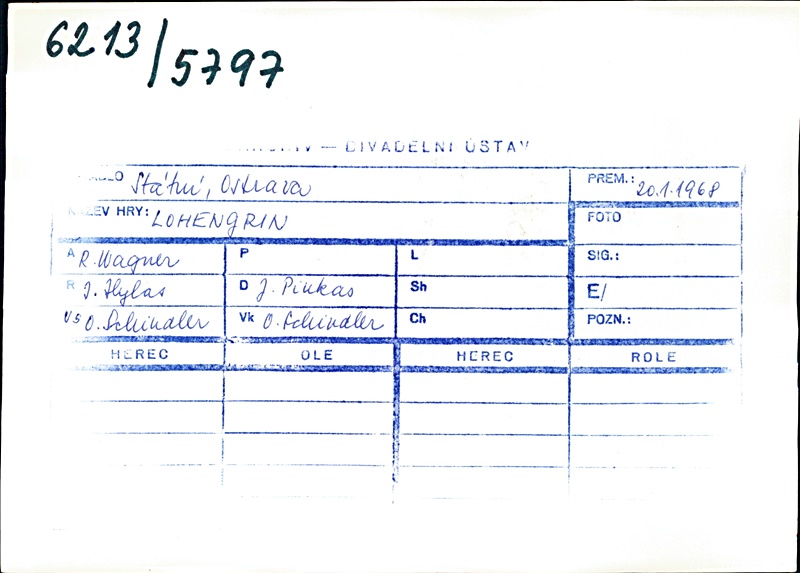 6213/5797
— DIVADELNÍ ÚSTAV
Státní, Ostrava PREM.: 20.1.1968
NÁZEV HRY: LOHENGRIN FOTO
A R. Wagner P L SIG.:
R J. Hylas D J. Pinkas Sh E/
Vs O. Schindler Vk O. Schindler Ch POZN.:
HEREC OLE HEREC ROLE